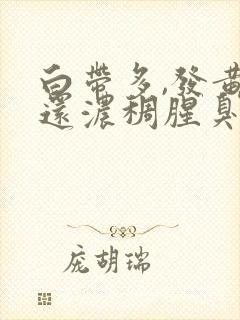 白帶多,發黃
還濃稠腥臭
庞胡瑞